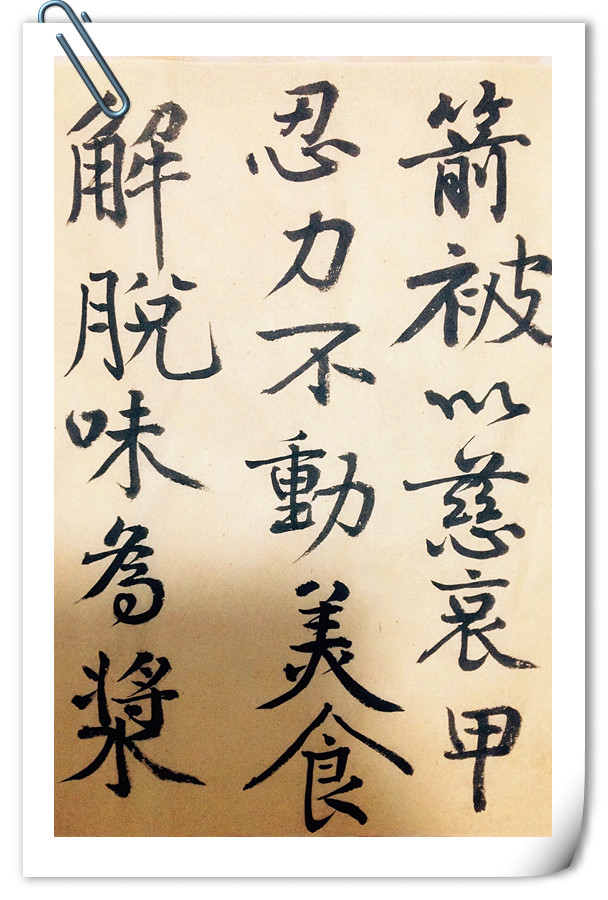 箭被以慈哀甲
忍力不動美食
解脫味為漿